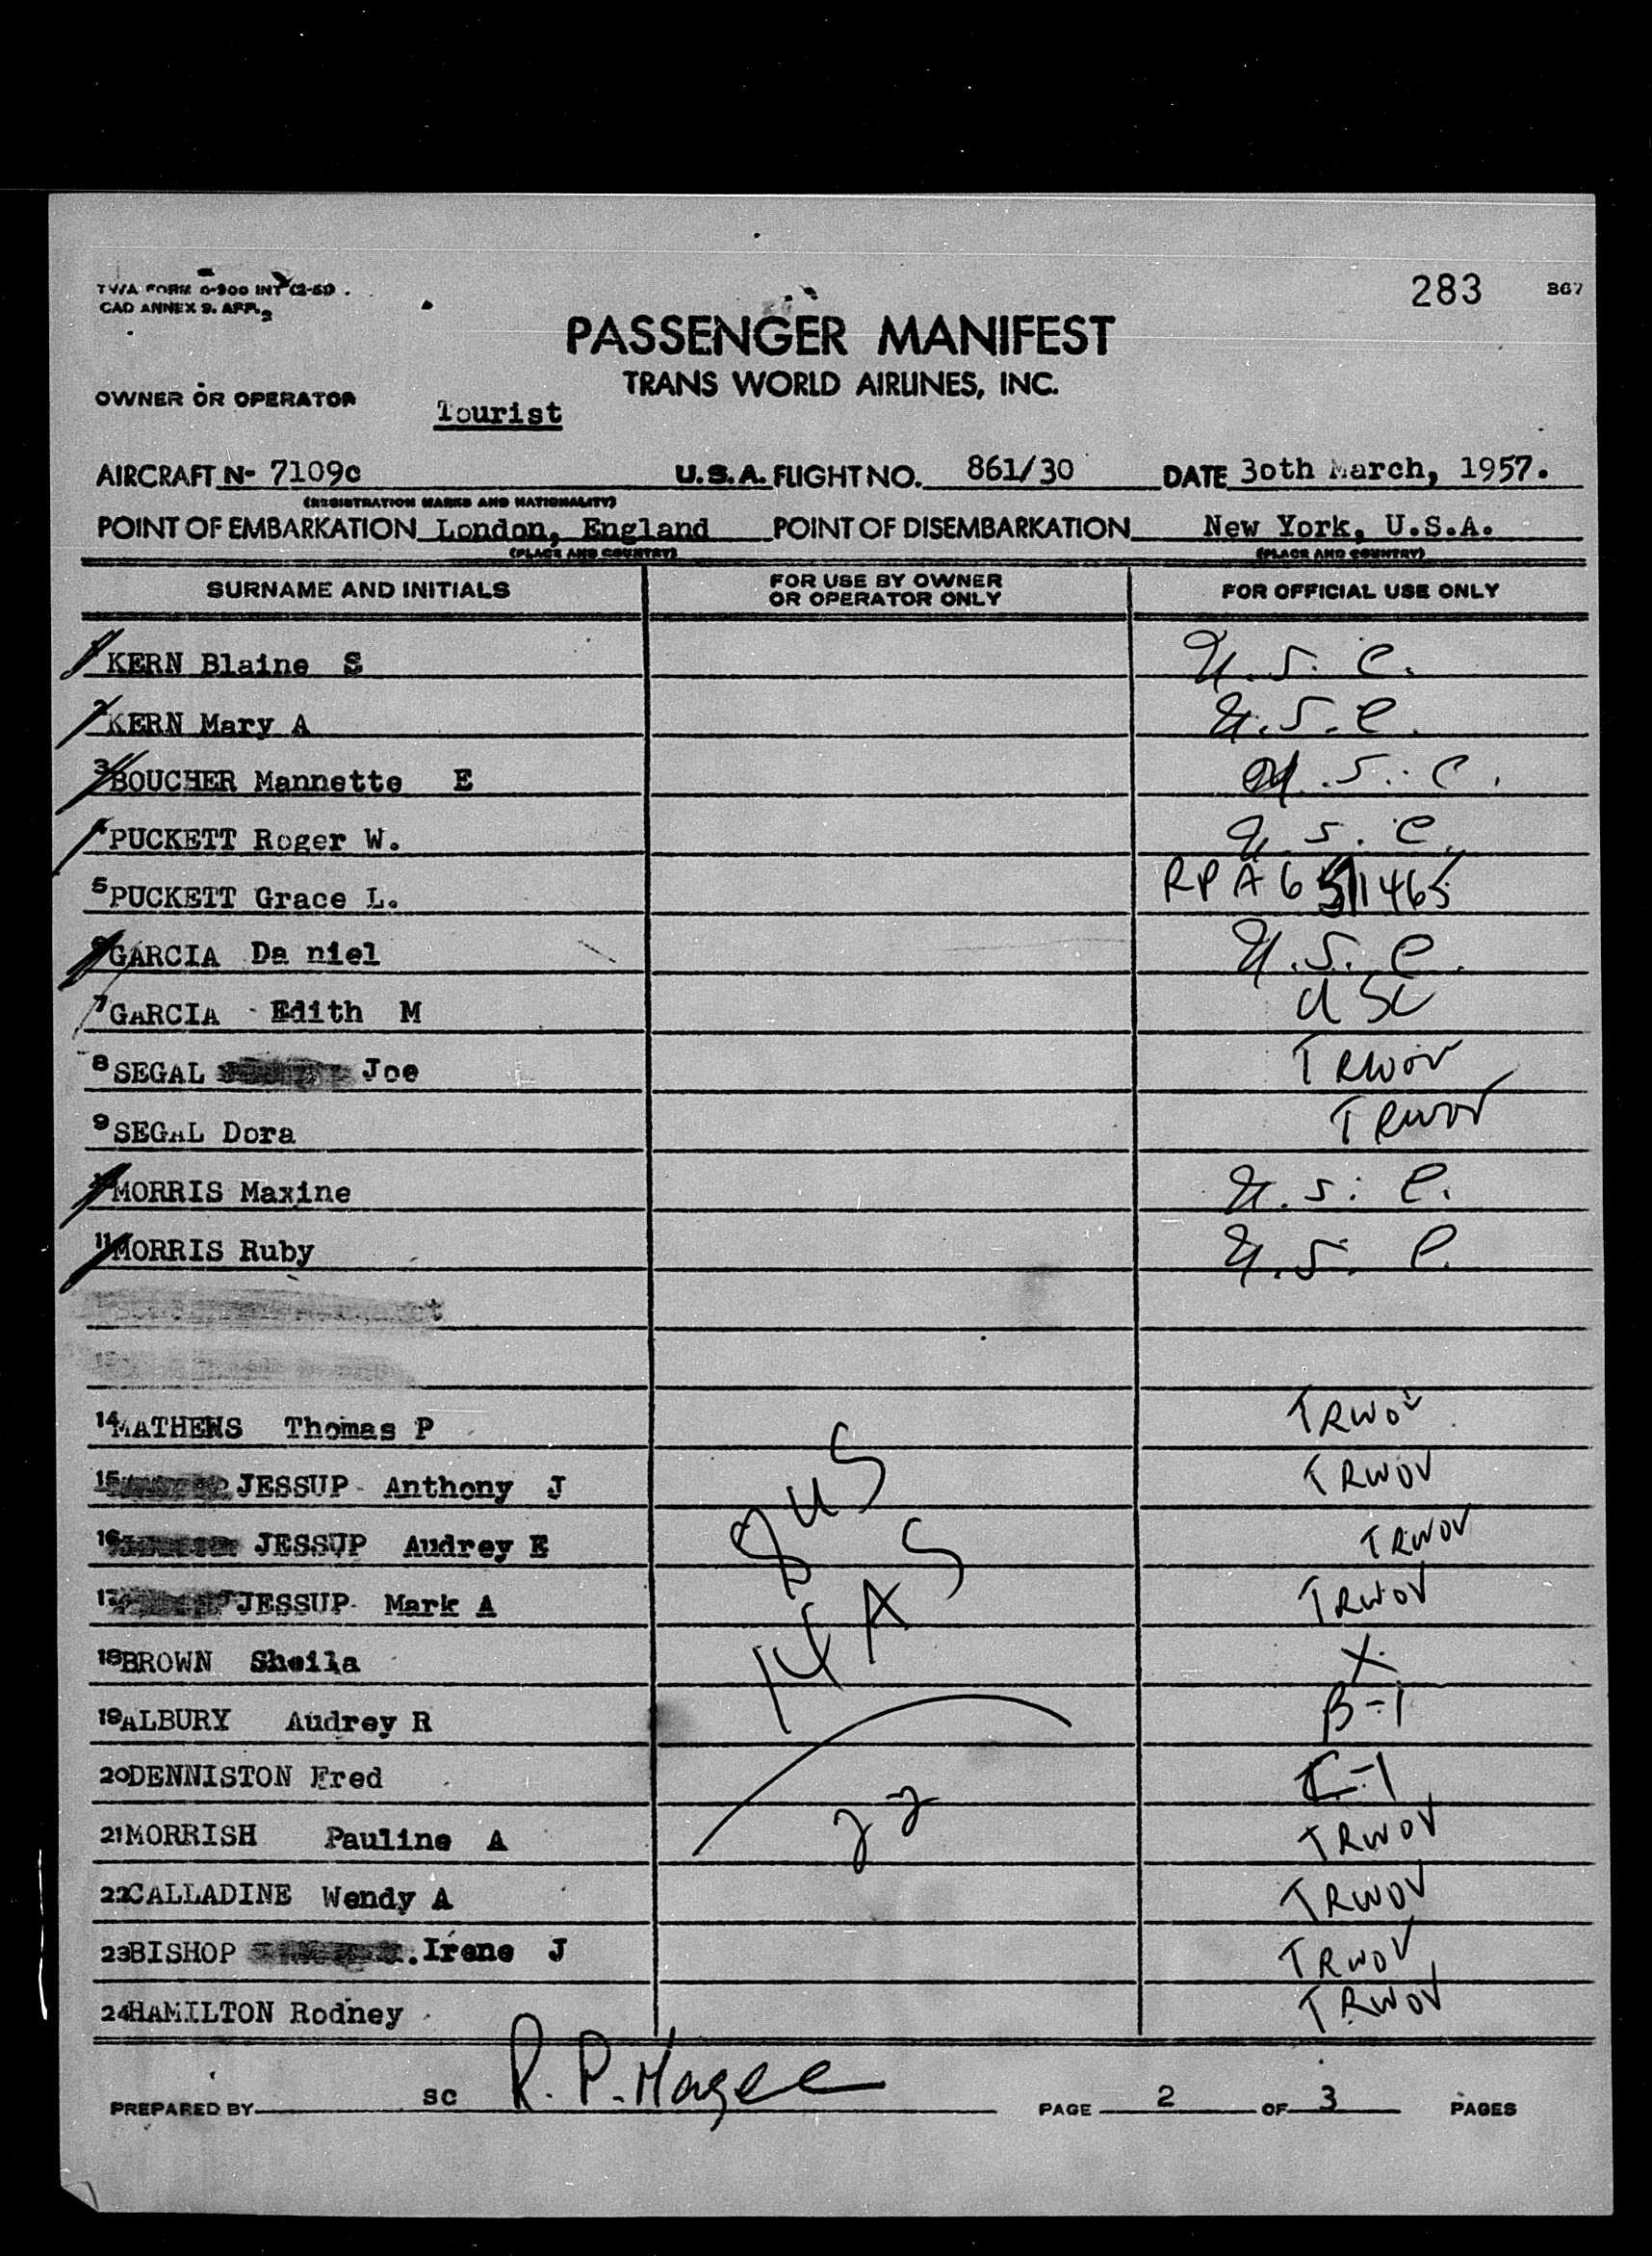 TWA FORM 0-900 INT (2-51)
CAO ANNEX 9. APP. 2
283
867
PASSENGER MANIFEST
TRANS WORLD AIRLINES, INC.
OWNER OR OPERATOR Tourist
AIRCRAFT N- 7109c U.S.A. FLIGHT NO. 861/30 DATE 30th March, 1957.
(REGISTRATION MARKS AND NATIONALITY)
POINT OF EMBARKATION London, England POINT OF DISEMBARKATION New York, U.S.A.
(PLACE AND COUNTRY) (PLACE AND COUNTRY)
SURNAME AND INITIALS FOR USE BY OWNER OR OPERATOR ONLY FOR OFFICIAL USE ONLY
1 KERN Blaine S U.S.C.
2 KERN Mary A U.S.C.
3 BOUCHER Mannette E U.S.C.
4 PUCKETT Roger W. U.S.C.
5 PUCKETT Grace L. RPA6 511465
6 GARCIA Da niel U.S.C.
7 GARCIA Edith M USC
8 SEGAL Joe TRWOV
9 SEGAL Dora TRWOV
10 MORRIS Maxine U.S.C.
11 MORRIS Ruby U.S.C.
14 MATHEWS Thomas P TRWOV
15 JESSUP Anthony J TRWOV
8 US
16 JESSUP Audrey E TRWOV
17 JESSUP Mark A TRWOV
14 AS
18 BROWN Sheila X
19 ALBURY Audrey R B-1
20 DENNISTON Fred C-1
22
21 MORRISH Pauline A TRWOV
22 CALLADINE Wendy A TRWOV
23 BISHOP Irene J TRWOV
24 HAMILTON Rodney TRWOV
PREPARED BY sc R. P. Magee PAGE 2 OF 3 PAGES